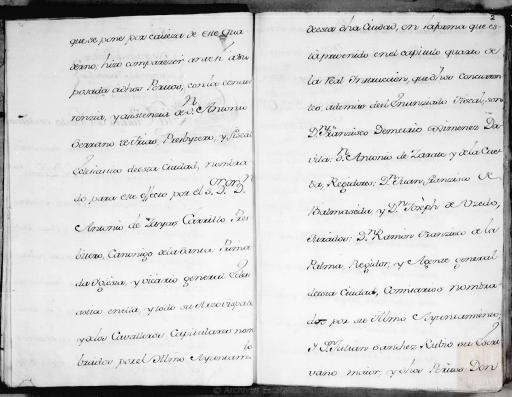 que se pone por caveza de este Qua
derno, hizo comparezer ante si
posada a dhos Peritos, con la concu
rrenzia, y asistenzia de Dn. Antonio
Serrano de Frias, Presbytero, y Fiscal
Eclesiastico de esta Ciudad, nombra
do para este efecto por el S. Dn. Dn.
Antonio de Zayas Carrillo, Pres
bitero, Canonigo de la Santa Prima
da Yglesia, y vicario general Ecle
siastico en ella, y todo su Arzovispado
y a los Cavalleros Capitulares nom
brados por el Yltmo Ayuntamto
2
de esta dha Ciudad, en la forma que es
ta prevenido en el capitulo quarto de
la Real Instruccion, que dhos Concurren
tes, ademas del Enunziado Fiscal, son
Dn. Franzisco Demetrio Ximenez Da
vila: Dn. Antonio de Zarate y de la Cue
ba, Regidores; Dn. Juan Franzisco de
Balmaseda, y Dn. Joseph de Uzedo,
Jurados: Dn. Ramon Franzisco de la
Palma, Regidor, y Agente general
de esta Ciudad, Comisarios nombra
dos por su Yltmo Ayuntamiento;
y Dn. Julian Sanchez Rubio su Escri
vano maior, y dhos Peritos Don